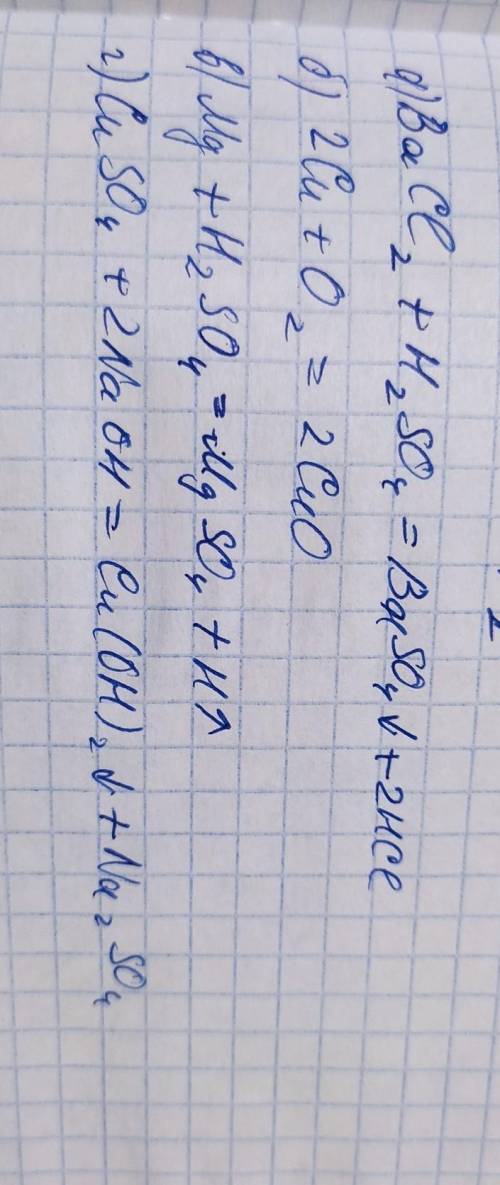 а) BaCl₂ + H₂SO₄ = BaSO₄↓ + 2HCl
б) 2Cu + O₂ = 2CuO
в) Mg + H₂SO₄ = MgSO₄ + H↑
г) CuSO₄ + 2NaOH = Cu(OH)₂↓ + Na₂SO₄